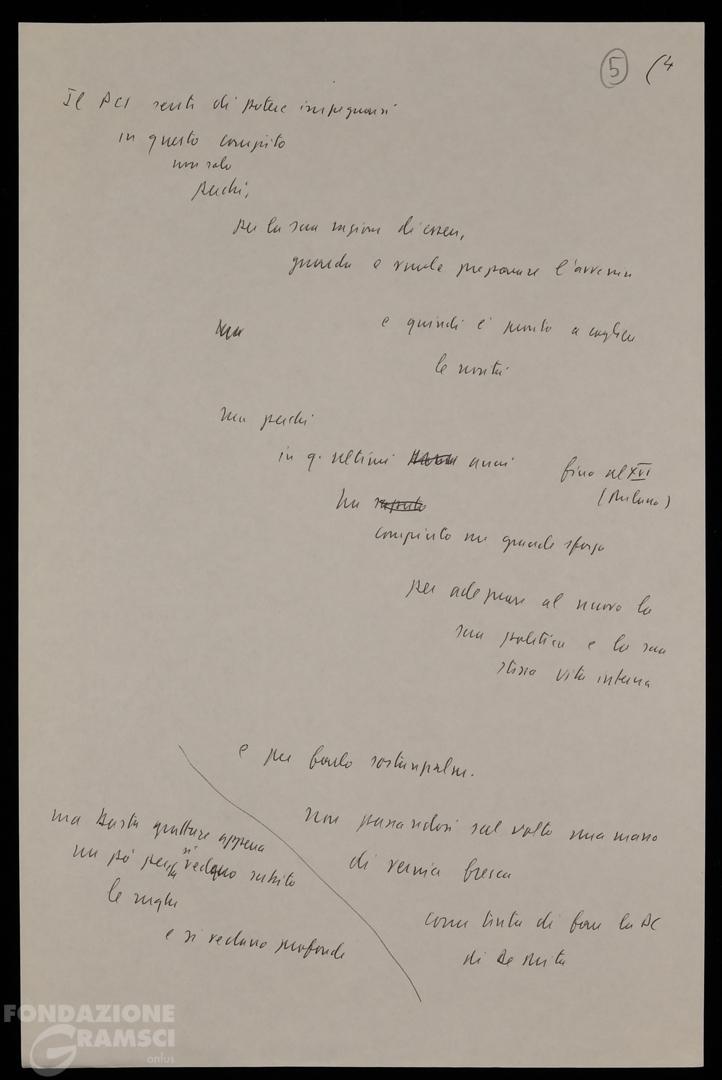 5 (4
Il PCI sente di potere impegnarsi
in questo compito
non solo
perché,
per la sua ragione di essere,
guarda e vuole preparare l'avvenire
e quindi è pronto a cogliere
le novità
ma perché
in q. ultimi anni fino al XVI
(Milano)
ha
compiuto un grande sforzo
per adeguare al nuovo la
sua politica e la sua
stessa vita interna
e per farlo sostanzialm.
non passandosi sul volto una mano
di vernice fresca
come tenta di fare la DC
di De Mita
ma basta grattare appena
un pò perché si vedano subito
le rughe
e si vedano profonde
FONDAZIONE
GRAMSCI
onlus